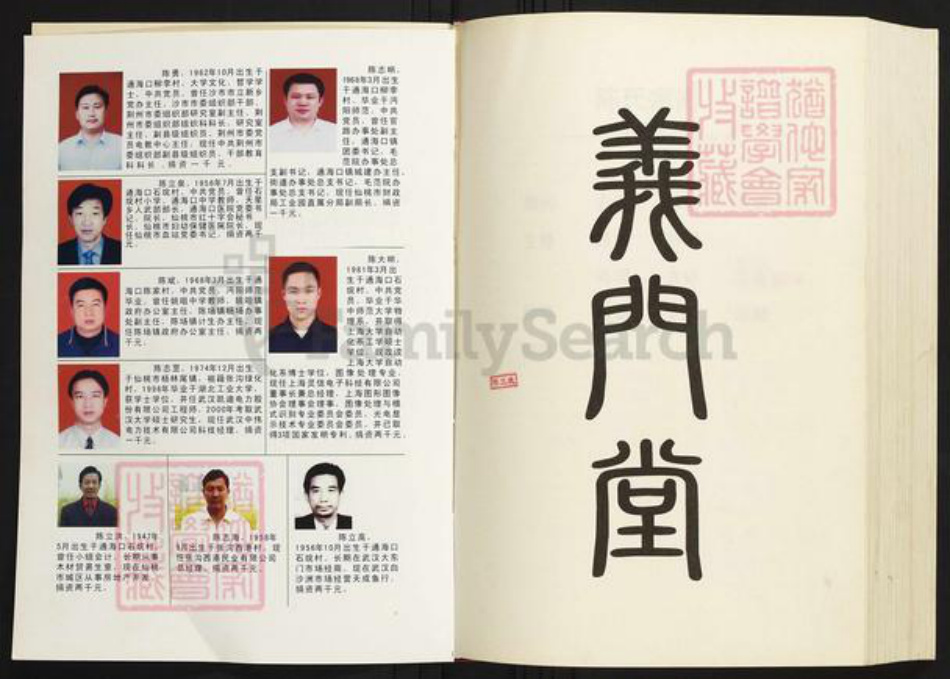 陈勇，1962年10月出生于
通海口柳李村，大学文化，哲学学
士，中共党员，曾任沙市市立新乡
党办主任，沙市市委组织部干部，
荆州市委组织部研究室副主任，荆
州市委组织部组织科科长，研究室
主任，副县级组织员，荆州市委党
员电教中心主任，现任中共荆州市
委组织部副县级组织员，干部教育
科科长，捐资一千元。
通海口石垸村，中共党员，曾任石
垸村小学、通海口中学教师，天星
乡人武部部长，通海口医院党委书
记、院长，仙桃市红十字会秘书
长，仙桃市妇幼保健医院院长，现
任仙桃市血站党委书记，捐资两千
元。
陈斌，1968年3月出生于通
海口陈家村，中共党员，沔阳师范
毕业，曾任姚咀中学教师，姚咀镇
政府办公室主任，陈场镇杨场办事
处副主任，陈场镇计生办主任，现
任陈场镇政府办公室主任，捐资两
千元。
陈志罡，1974年12月出生
于仙桃市杨林尾镇，祖籍张沟绿化
村，1996年毕业于湖北工业大学，
获学士学位，并任武汉凯迪电力股
份有限公司工程师，2000年考取武
汉大学硕士研究生，现任武汉中伟
电力技术有限公司科技经理，捐资
一千元。
陈志明，
1968年3月出生
于通海口柳李
村，毕业于沔
阳师范，中共
党员，曾任官
路办事处副主
任，通海口镇
团委书记，毛
范院办事处总
支副书记，通海口镇城建办主任，
街道办事处总支书记，毛范院办
事处总支书记，现任仙桃市财政
局工业园直属分局副局长，捐资
一千元。
陈大明，
1981年3月出
生于通海口石
垸村，中共党
员，毕业于华
中师范大学物
理系，并取得
上海大学自动
化系工学硕士
学位，现攻读
上海大学自动
化系博士学位，图像处理专业，
现任上海灵信电子科技有限公司
董事长兼总经理，上海图形图像
协会理事会理事，图像处理与模
式识别专业委员会委员，光电显
示技术专业委员会委员，并已取
得3项国家发明专利，捐资两千元。
陈立洪，1947年
5月出生于通海口石垸村，
曾任小组会计，长期从事
木材贸易生意，现在仙桃
市城区从事房地产开发，
捐资两千元。
陈志海，1958年
9月出生于张沟西港村，现
任张沟西港民业有限公司
总经理，捐资两千元。
陈立高，
1956年10月出生于通海口
石垸村，长期在武汉大东
门市场经商，现在武汉白
沙洲市场经营天成鱼行，
捐资两千元。
義門堂
FamilySearch